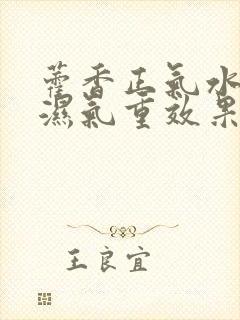 藿香正氣水
濕氣重效果
王良宜